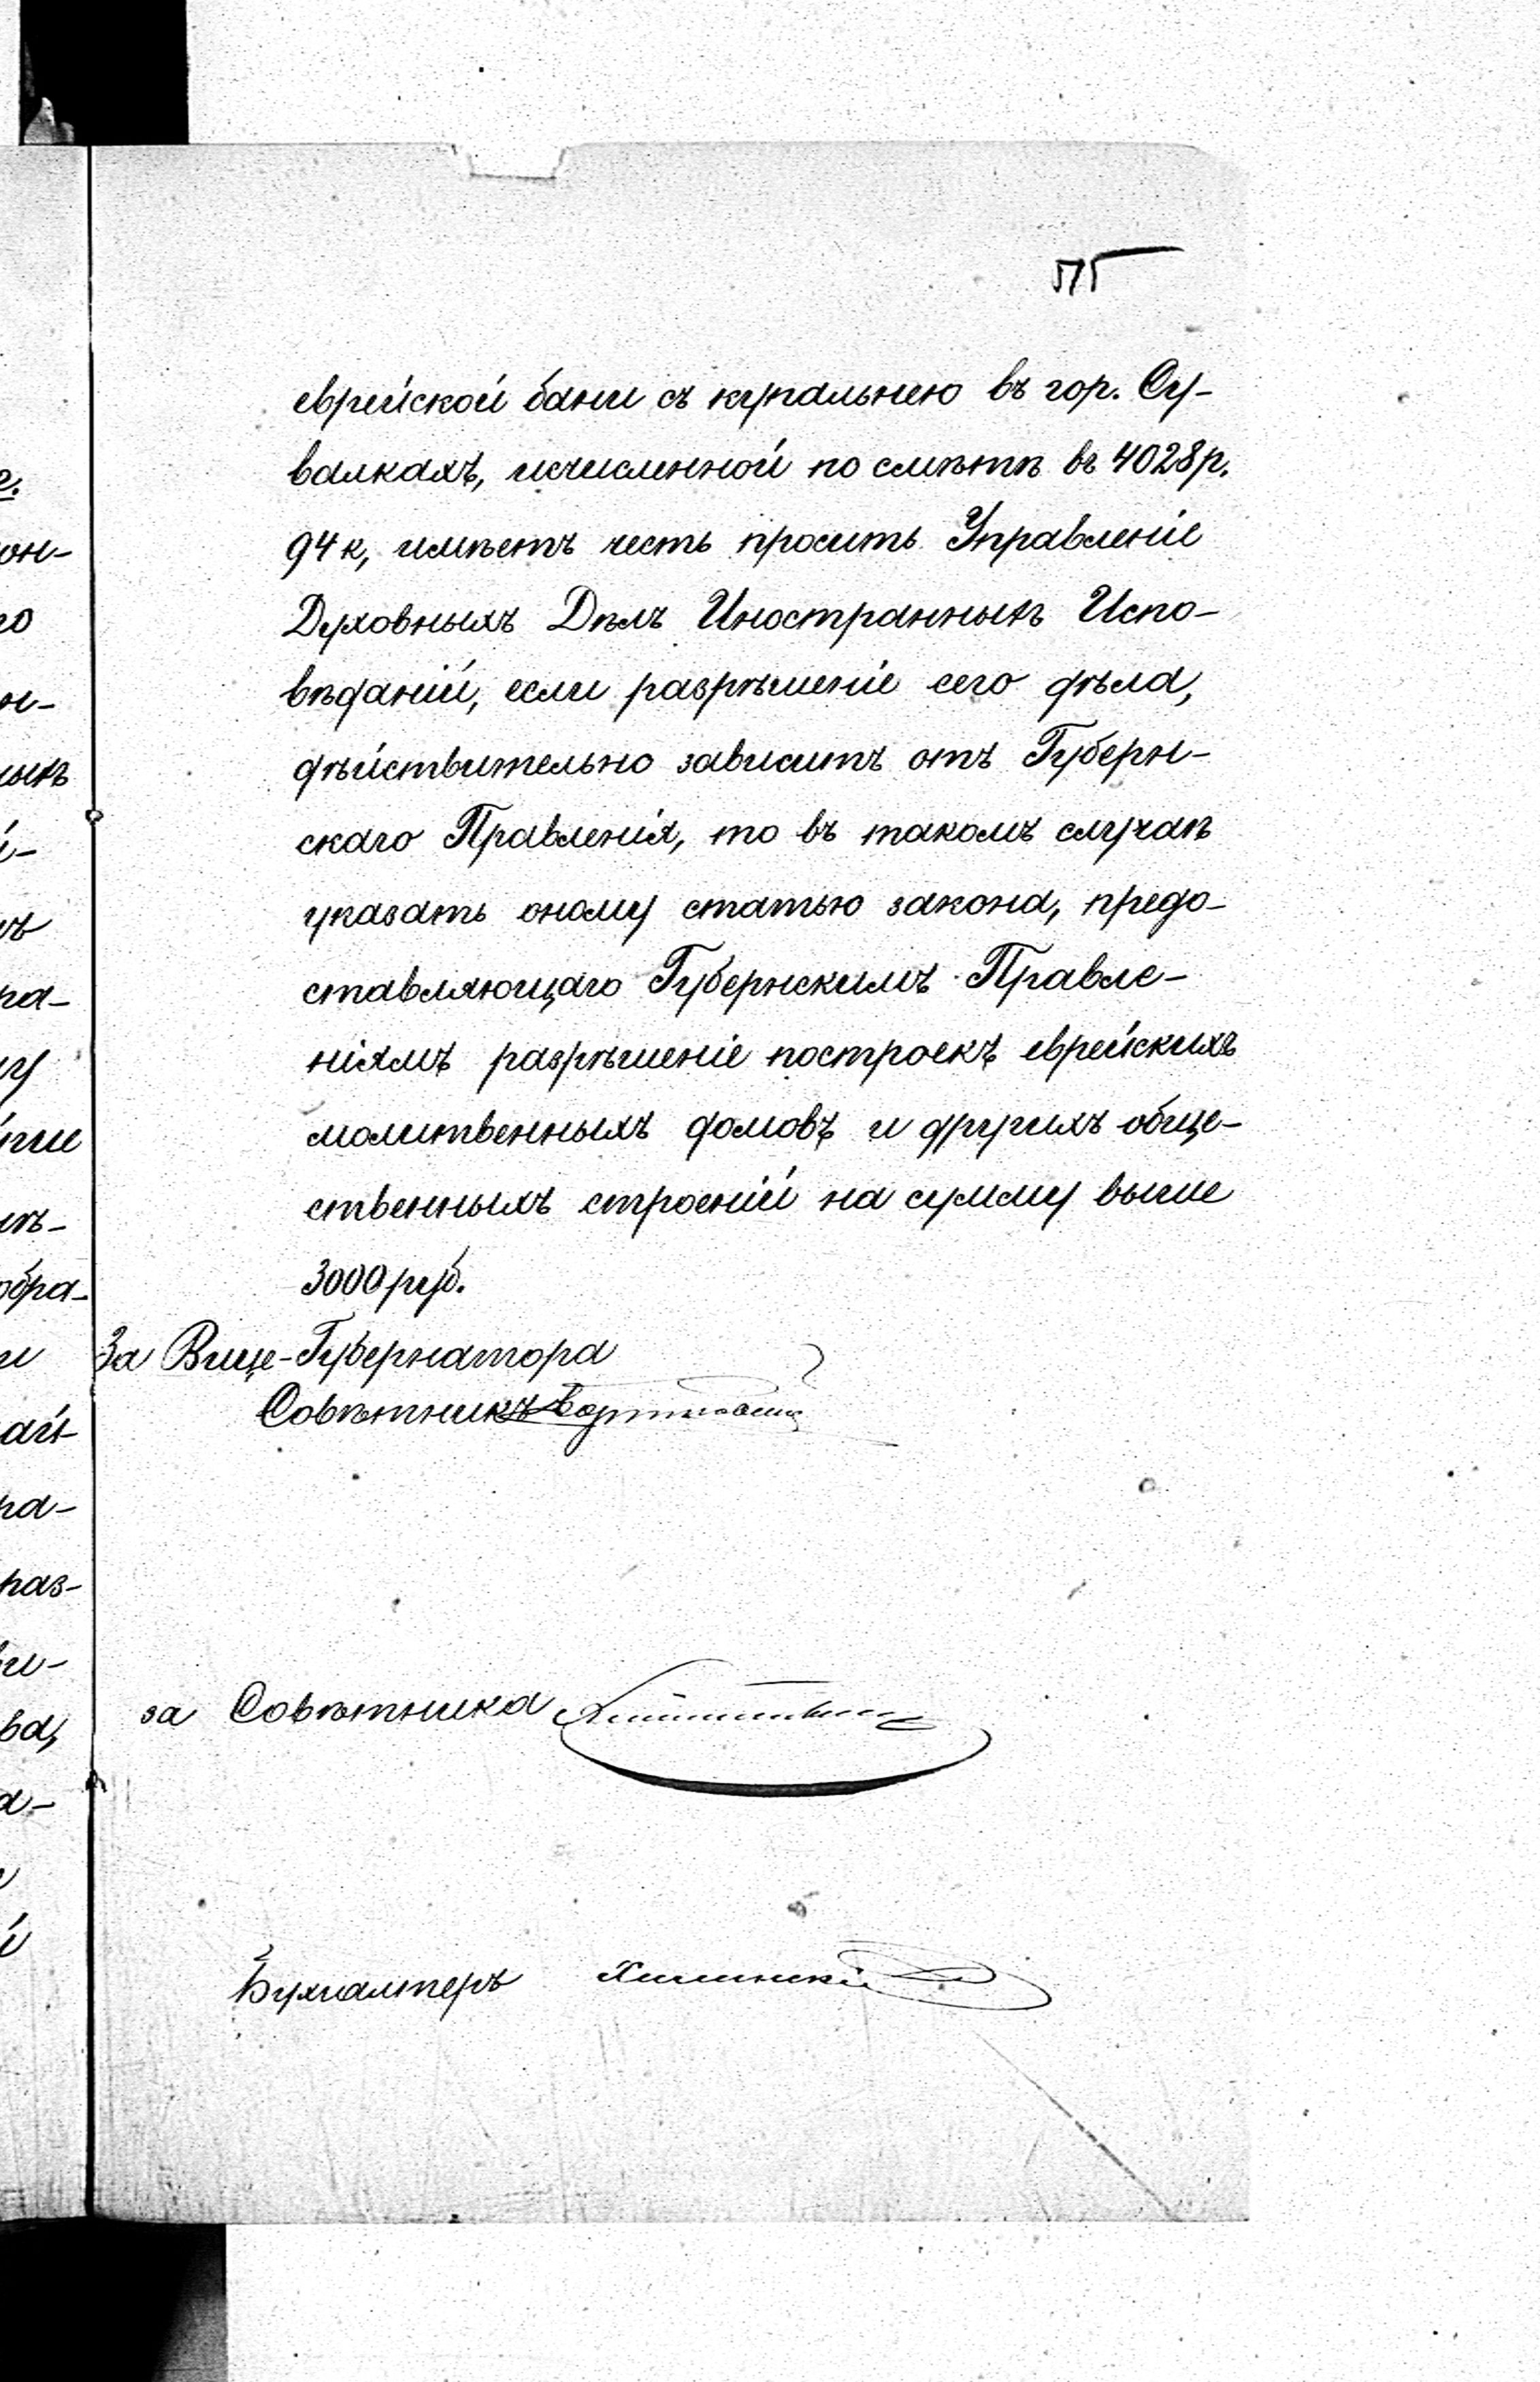 еврейской бани съ купальнею въ гор. Су-
валкахъ, исчисленной по смѣтѣ въ 4028 р.
94 к, имѣетъ честь просить Управленіе
Духовныхъ Дѣлъ Иностранныхъ Испо-
вѣданій, если разрѣшеніе сего дѣла,
дѣйствительно зависитъ отъ Губерн-
скаго Правленія, то въ такомъ случаѣ
указать оному статью закона, предо-
ставляющаго Губернскимъ Правле-
ніямъ разрѣшеніе построекъ еврейскихъ
молитвенныхъ домовъ и другихъ обще-
ственныхъ строеній на сумму выше
3000 руб.
За Вице-Губернатора
Совѣтникъ
за Совѣтника
Бухгалтеръ